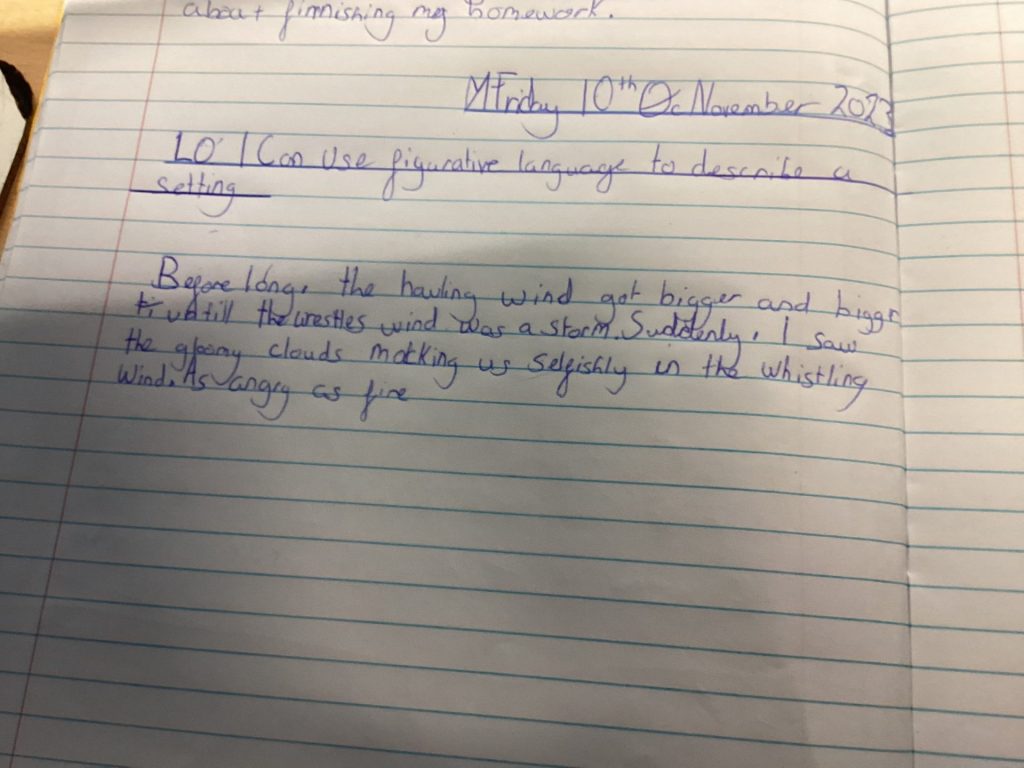 about finnishing my homework.
Friday 10th November 2023
LO: I Can Use figurative language to describe a
setting
Before long, the hauling wind got bigger and biggr
untill the wrestles wind was a storm. Suddenly, I saw
the gloomy clouds mocking us selfishly in the whistling
wind. As angry as fire